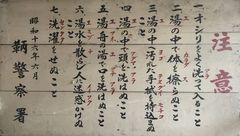 注意
一、オシリをよく洗って入ること
二、湯の中で体を擦らぬこと
三、湯の中へ汚れた手拭を持込まぬこと
四、湯の中で頭を洗はぬこと
五、湯舟の湯で口を洗はぬこと
六、湯水を散らし人に迷惑かけぬこと
七、洗濯をせぬこと
昭和十六年六月
鞆警察署